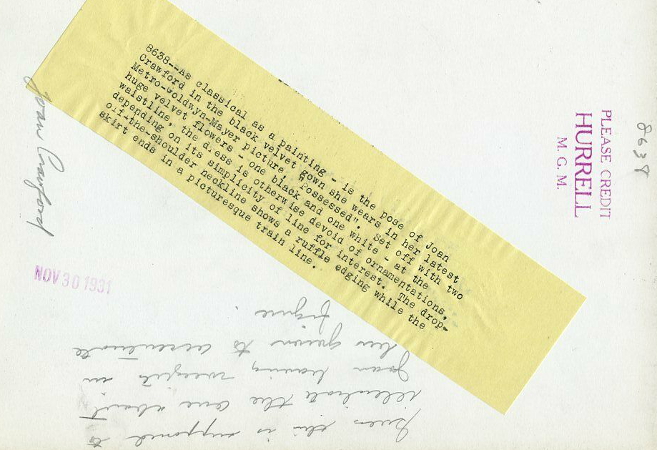 8638--As classical as a painting - is the pose of Joan
Crawford in the black velvet gown she wears in her latest
Metro-Goldwyn-Mayer picture, "Possessed". Set off with two
huge velvet flowers - one black and one white - at the
waistline, the dress is otherwise devoid of ornamentations,
depending on its simplicity of line for interest. The drop-
off-the-shoulder neckline shows a ruffle edging while the
skirt ends in a picturesque train line.
Joan Crawford
NOV 30 1931
PLEASE CREDIT
HURRELL
M. G. M.
8638
Guess this is supposed to
illustrate the one about
Joan having weights in
her gowns to accentuate
figure